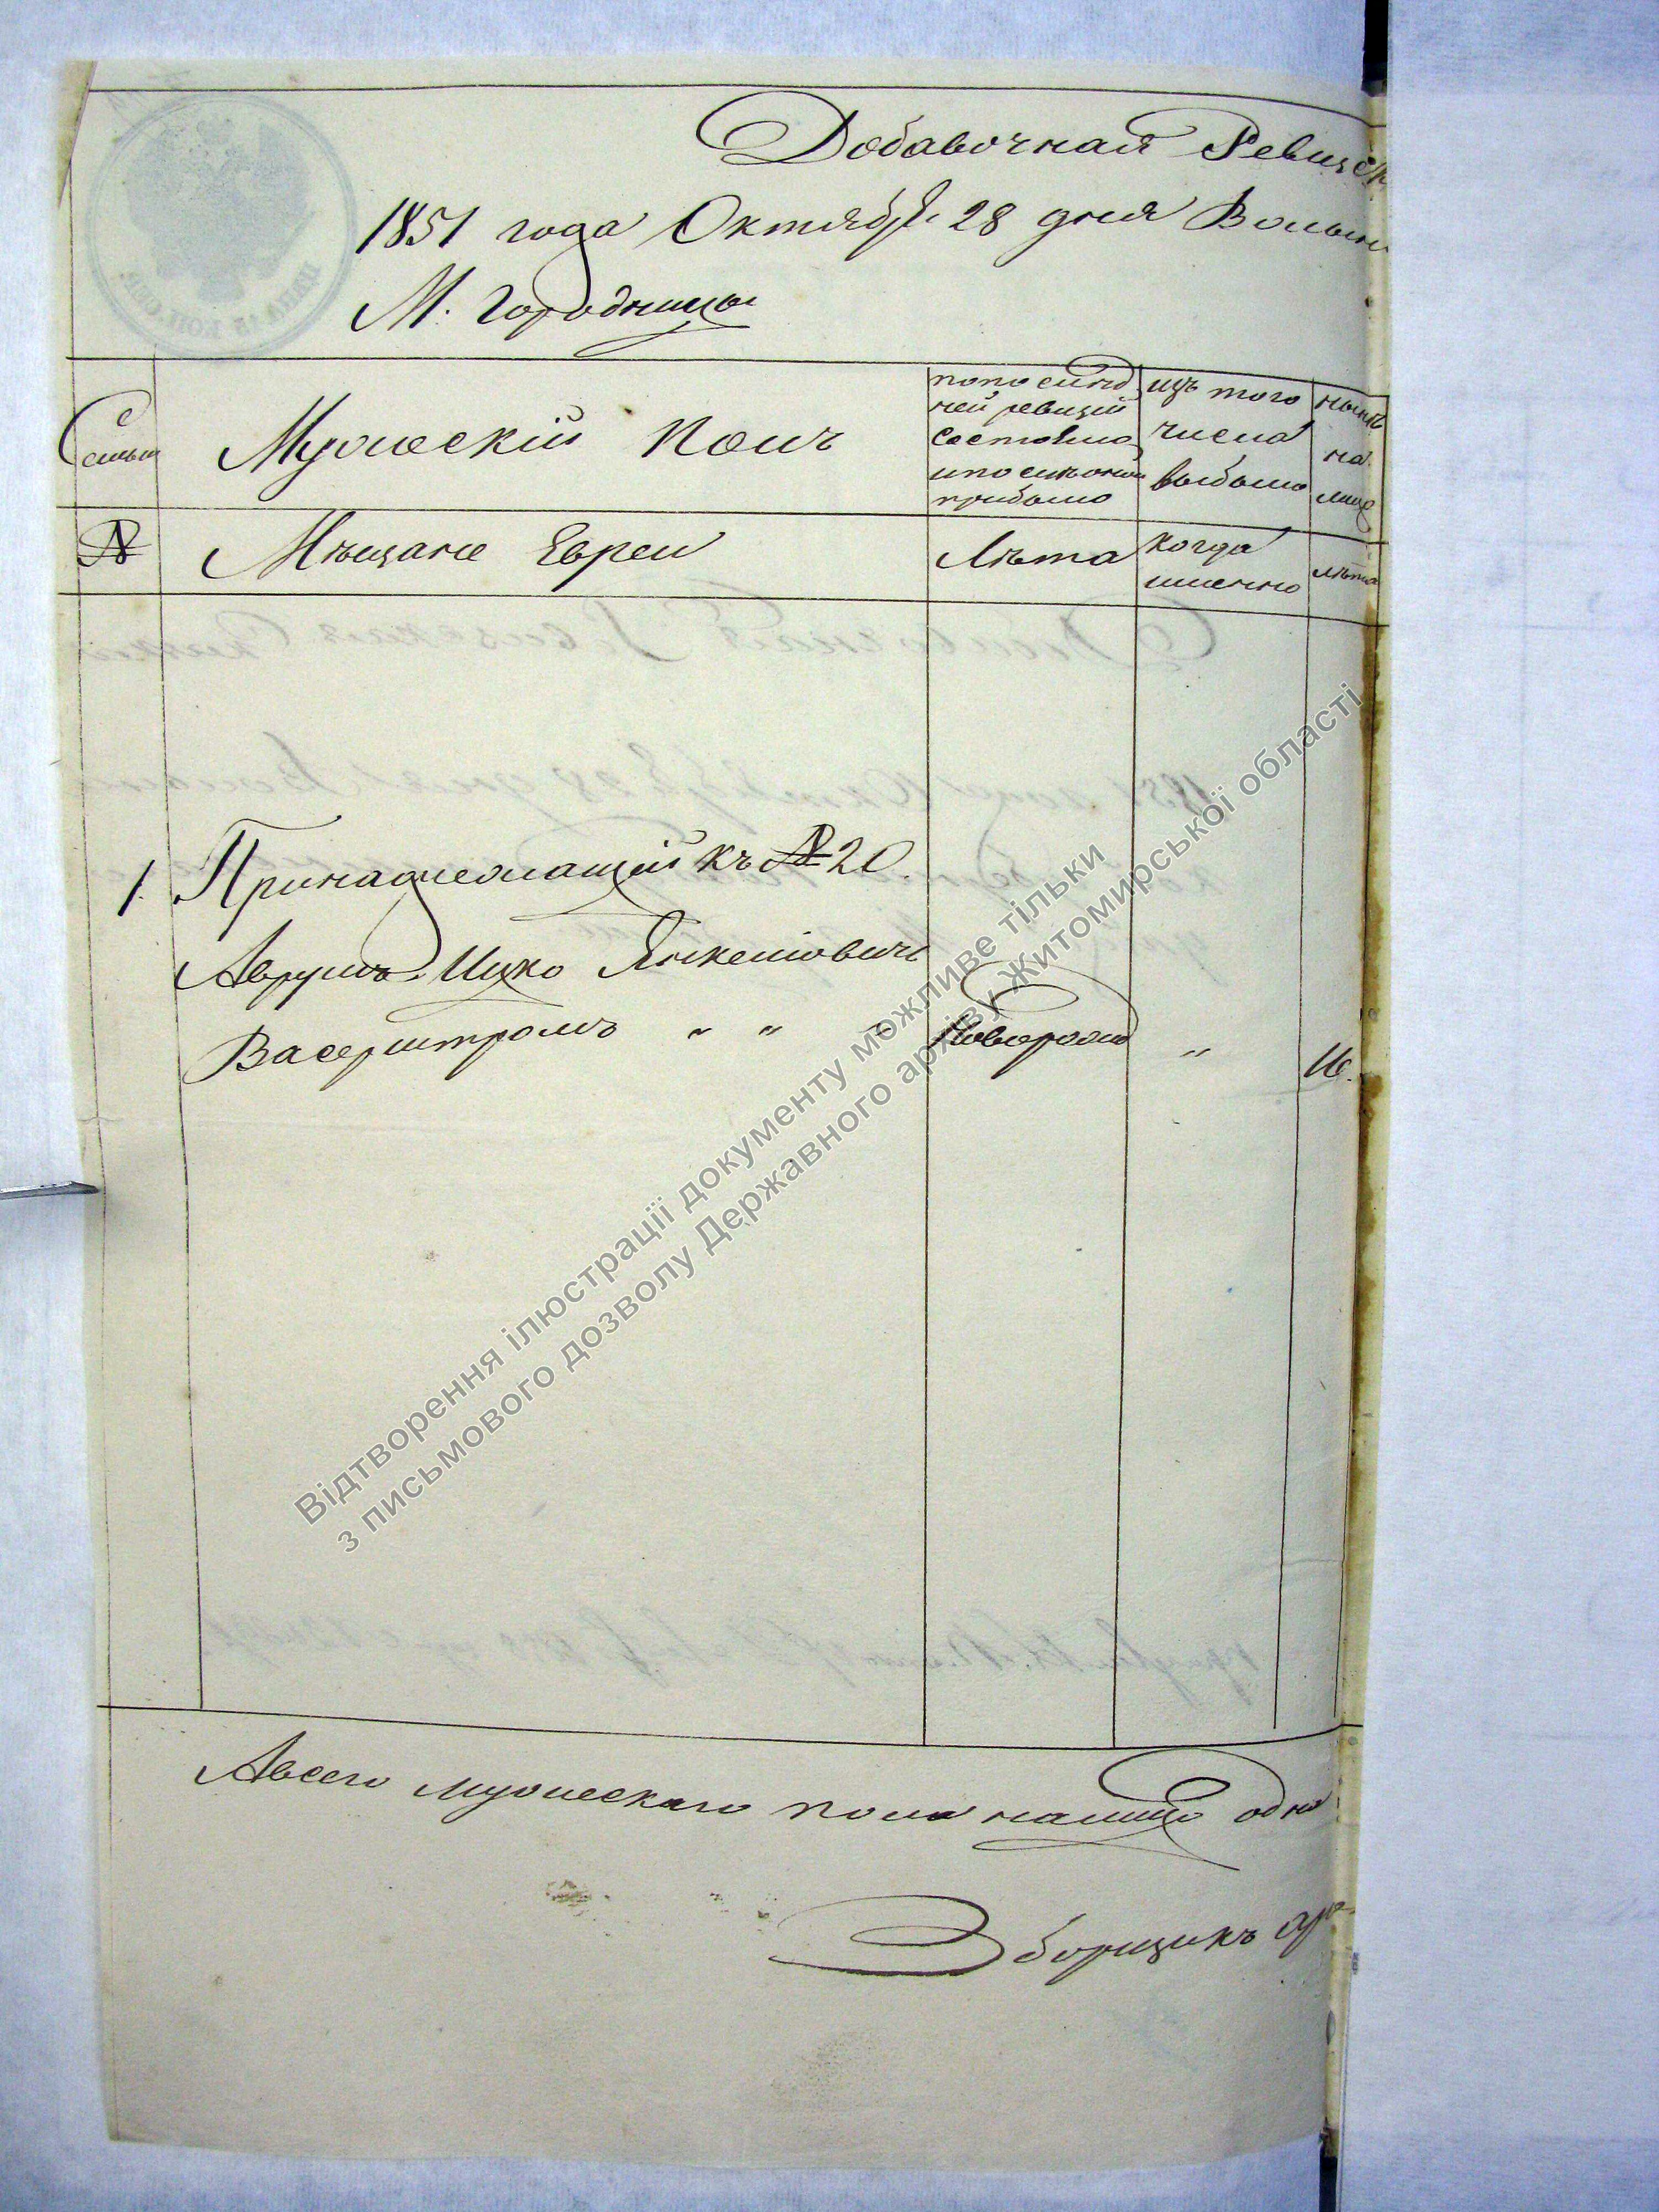 Добавочная Ревизск
1851 года Октября 28 дня Волын
М. Городницы
Семьи
Мужескій полъ
по послѣд
ней ревизіи
состояло
и после оной
прибыло
изъ того
числа
выбыло
нынѣ
на
лице
№
Мѣщане Евреи
Лѣта
когда
именно
лѣта
1. Принадлежащій къ № 20.
Аврумъ Ицко Янкелiовичъ
Васерштромъ " "
Новорожд
"
16.
А всего мужескаго пола налицо одна
Зборщикъ
Відтворення ілюстрації документу можливе тільки
з письмового дозволу Державного архіву Житомирської області